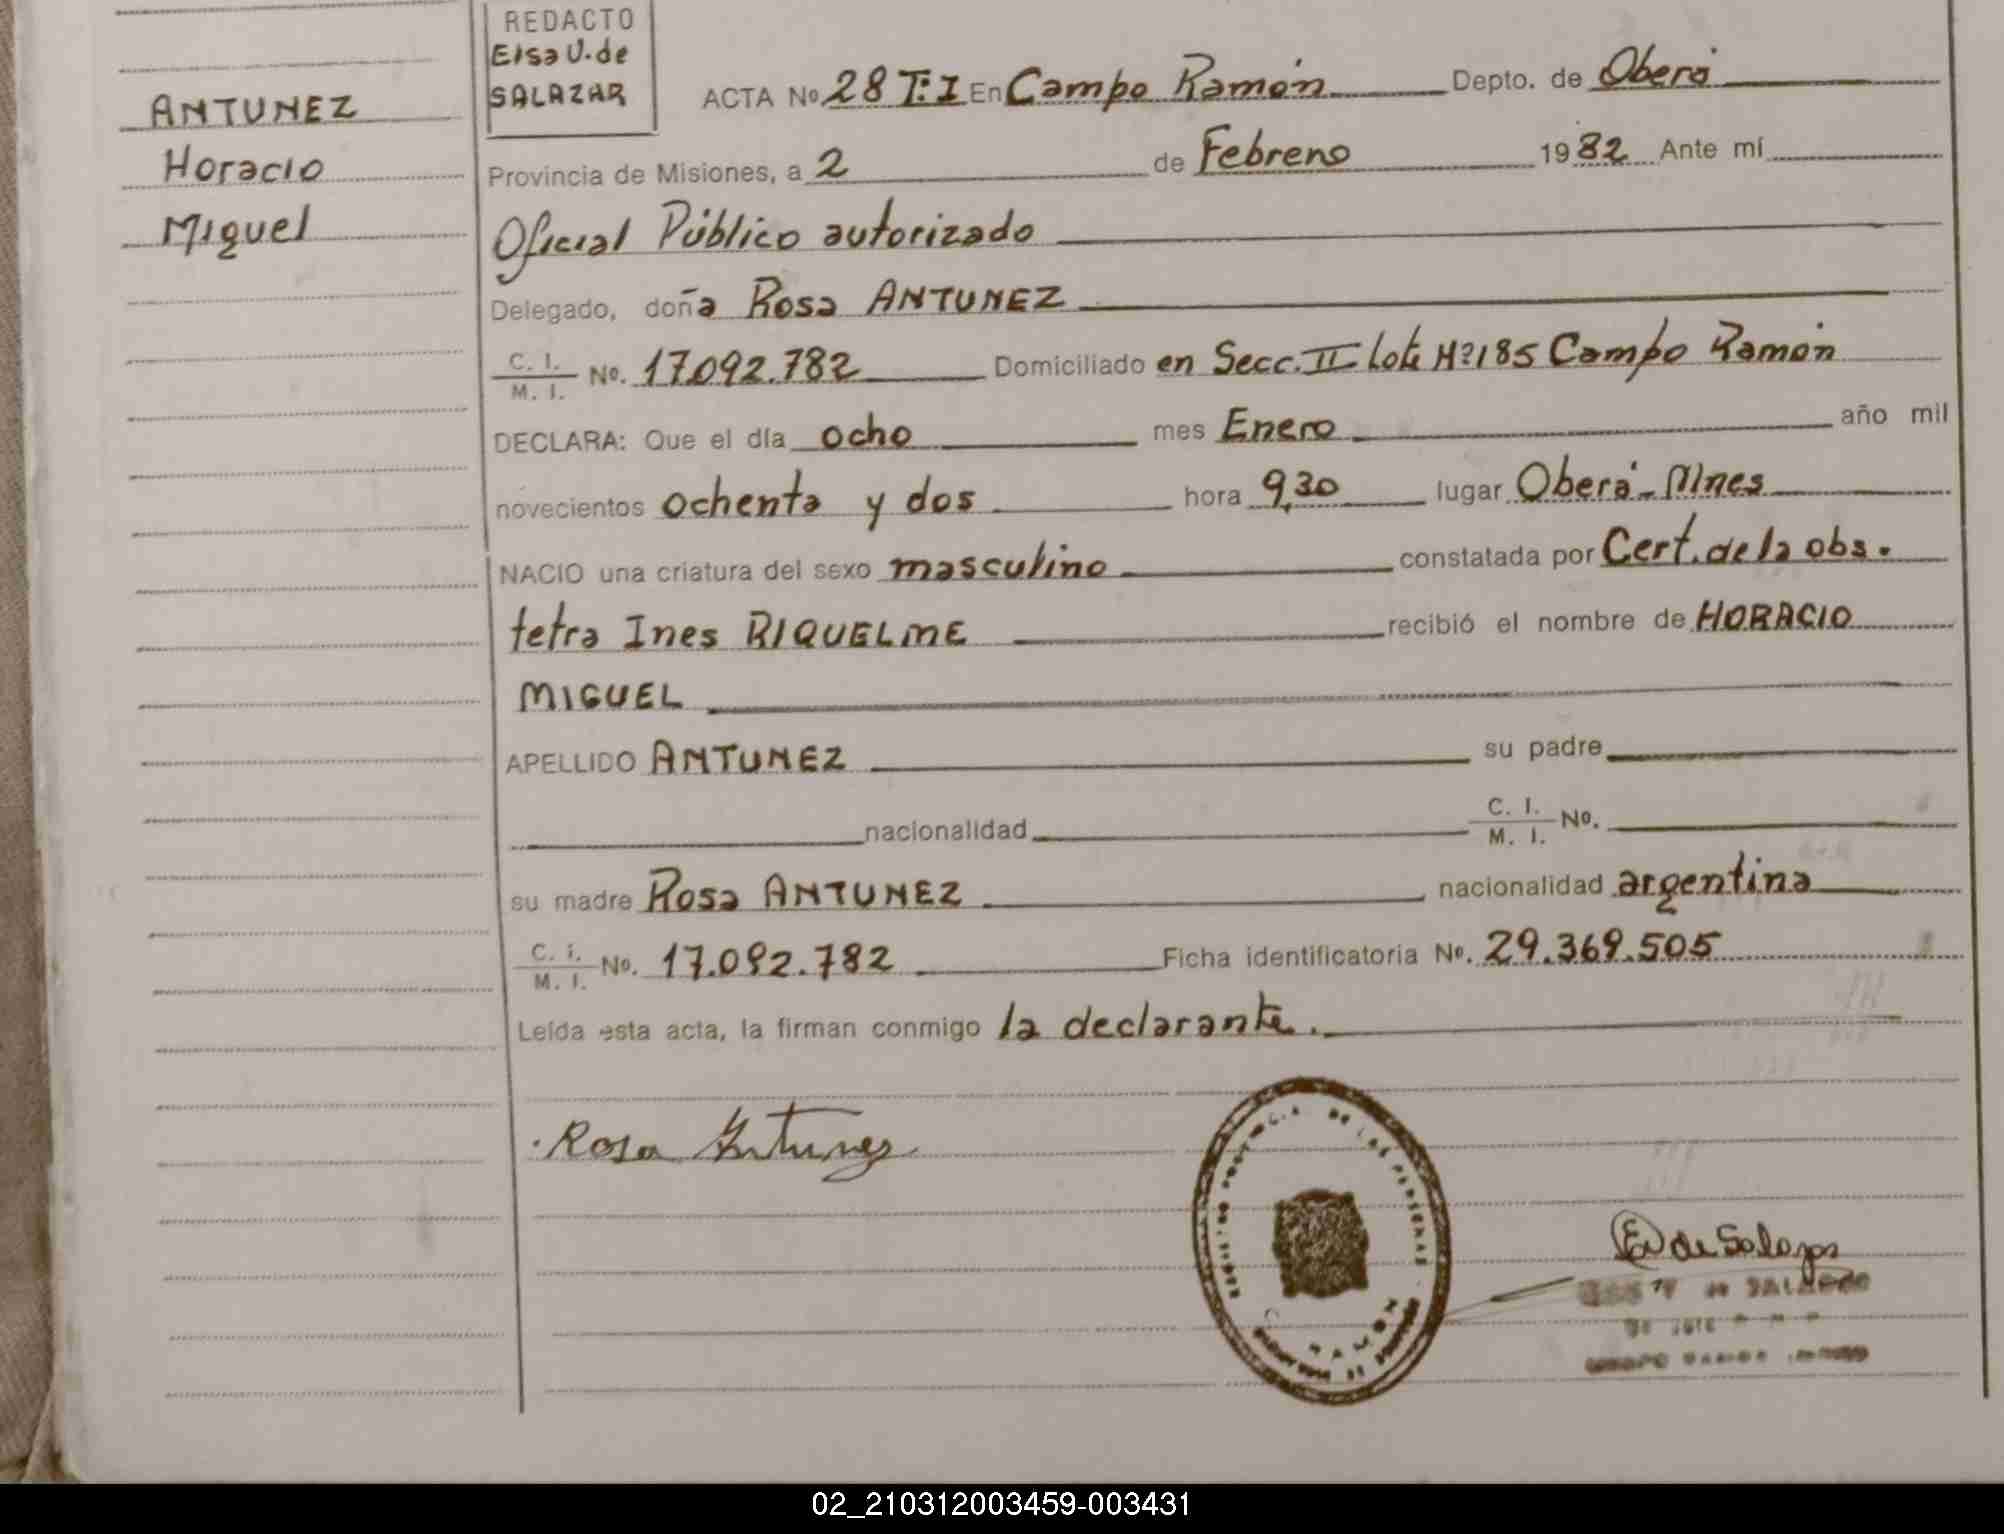 REDACTO
Elsa U. de
SALAZAR
ANTUNEZ
Horacio
Miguel
ACTA No 28 T:I En Campo Ramón Depto. de Oberá
Provincia de Misiones, a 2 de Febrero 1982 Ante mí
Oficial Público autorizado
Delegado, doña Rosa ANTUNEZ
C. I. / M. I. No. 17.092.782 Domiciliado en Secc. II Lote Nº 185 Campo Ramón
DECLARA: Que el día ocho mes Enero año mil
novecientos ochenta y dos hora 9,30 lugar Oberá - Mnes
NACIO una criatura del sexo masculino constatada por Cert. de la obs.
tetra Ines RIQUELME recibió el nombre de HORACIO
MIGUEL
APELLIDO ANTUNEZ su padre
nacionalidad C. I. / M. I. No.
su madre Rosa ANTUNEZ nacionalidad argentina
C. I. / M. I. No. 17.092.782 Ficha identificatoria No. 29.369.505
Leída esta acta, la firman conmigo la declarante.
Rosa Antunez
DE LAS PERSONAS
RAMON
E U de Salazar
02_210312003459-003431